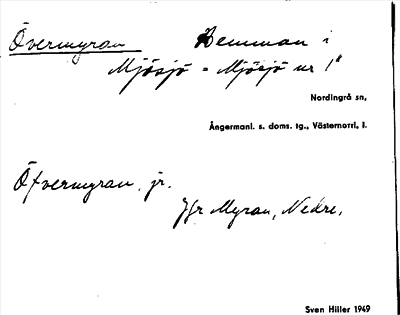 Övermyran Hemman i
Mjösjö = Mjösjö nr 1"
Nordingrå sn,
Ångermanl. s. doms. tg., Västernorrl. l.
Öfvermyran, jr.
Jfr Myran, Nedre.
Sven Hiller 1949